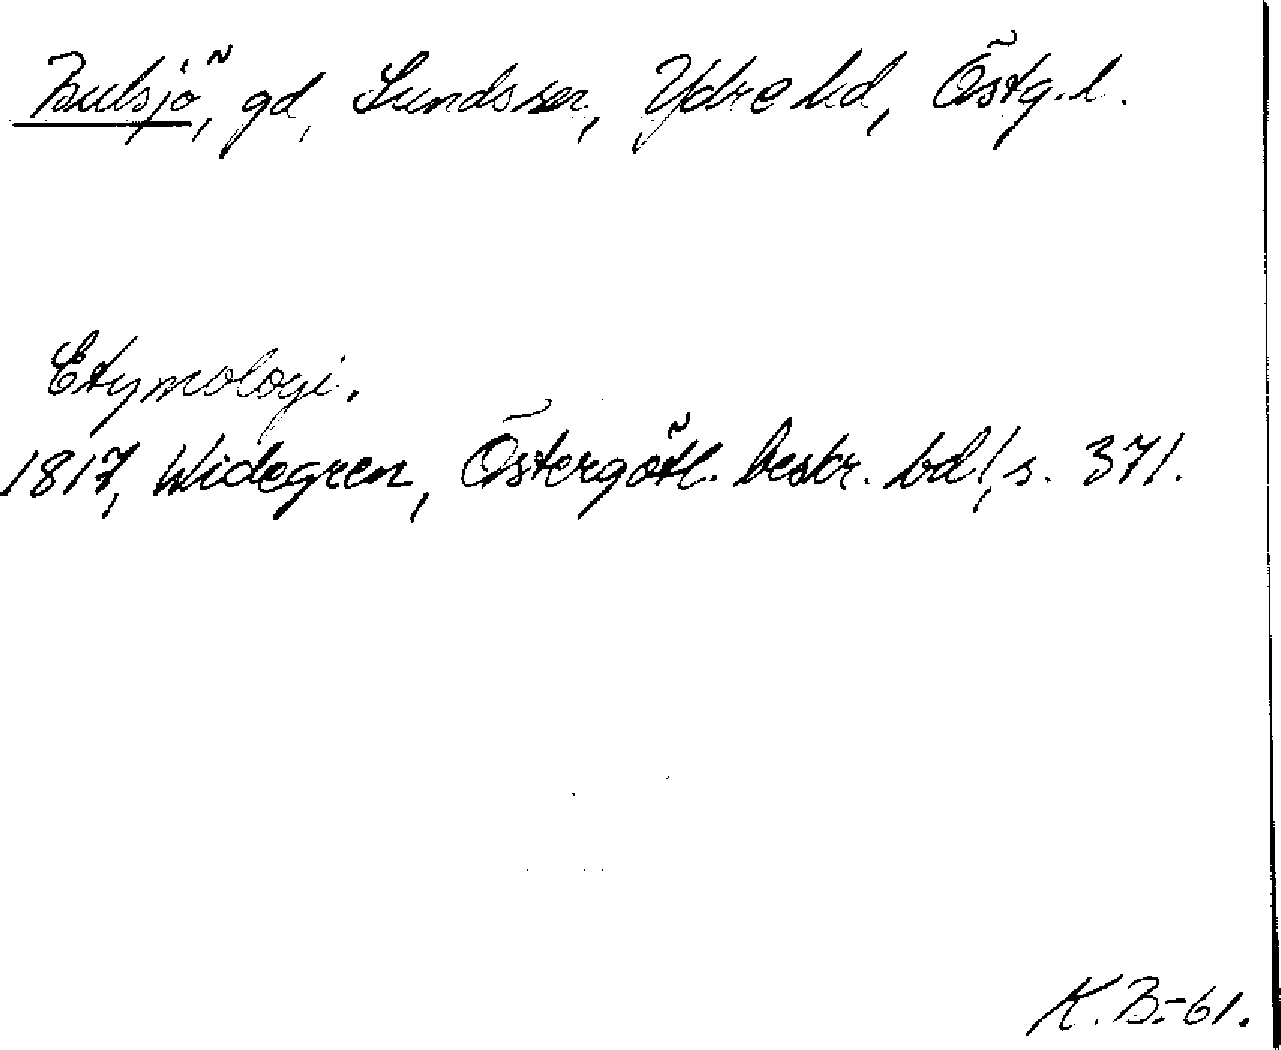 Bulsjö, gd, Sunds sn, Ydre hd, Östg.l.
Etymologi.
1817, Widegren, Östergötl. beskr. bd 1, s. 371.
K.B.-61.